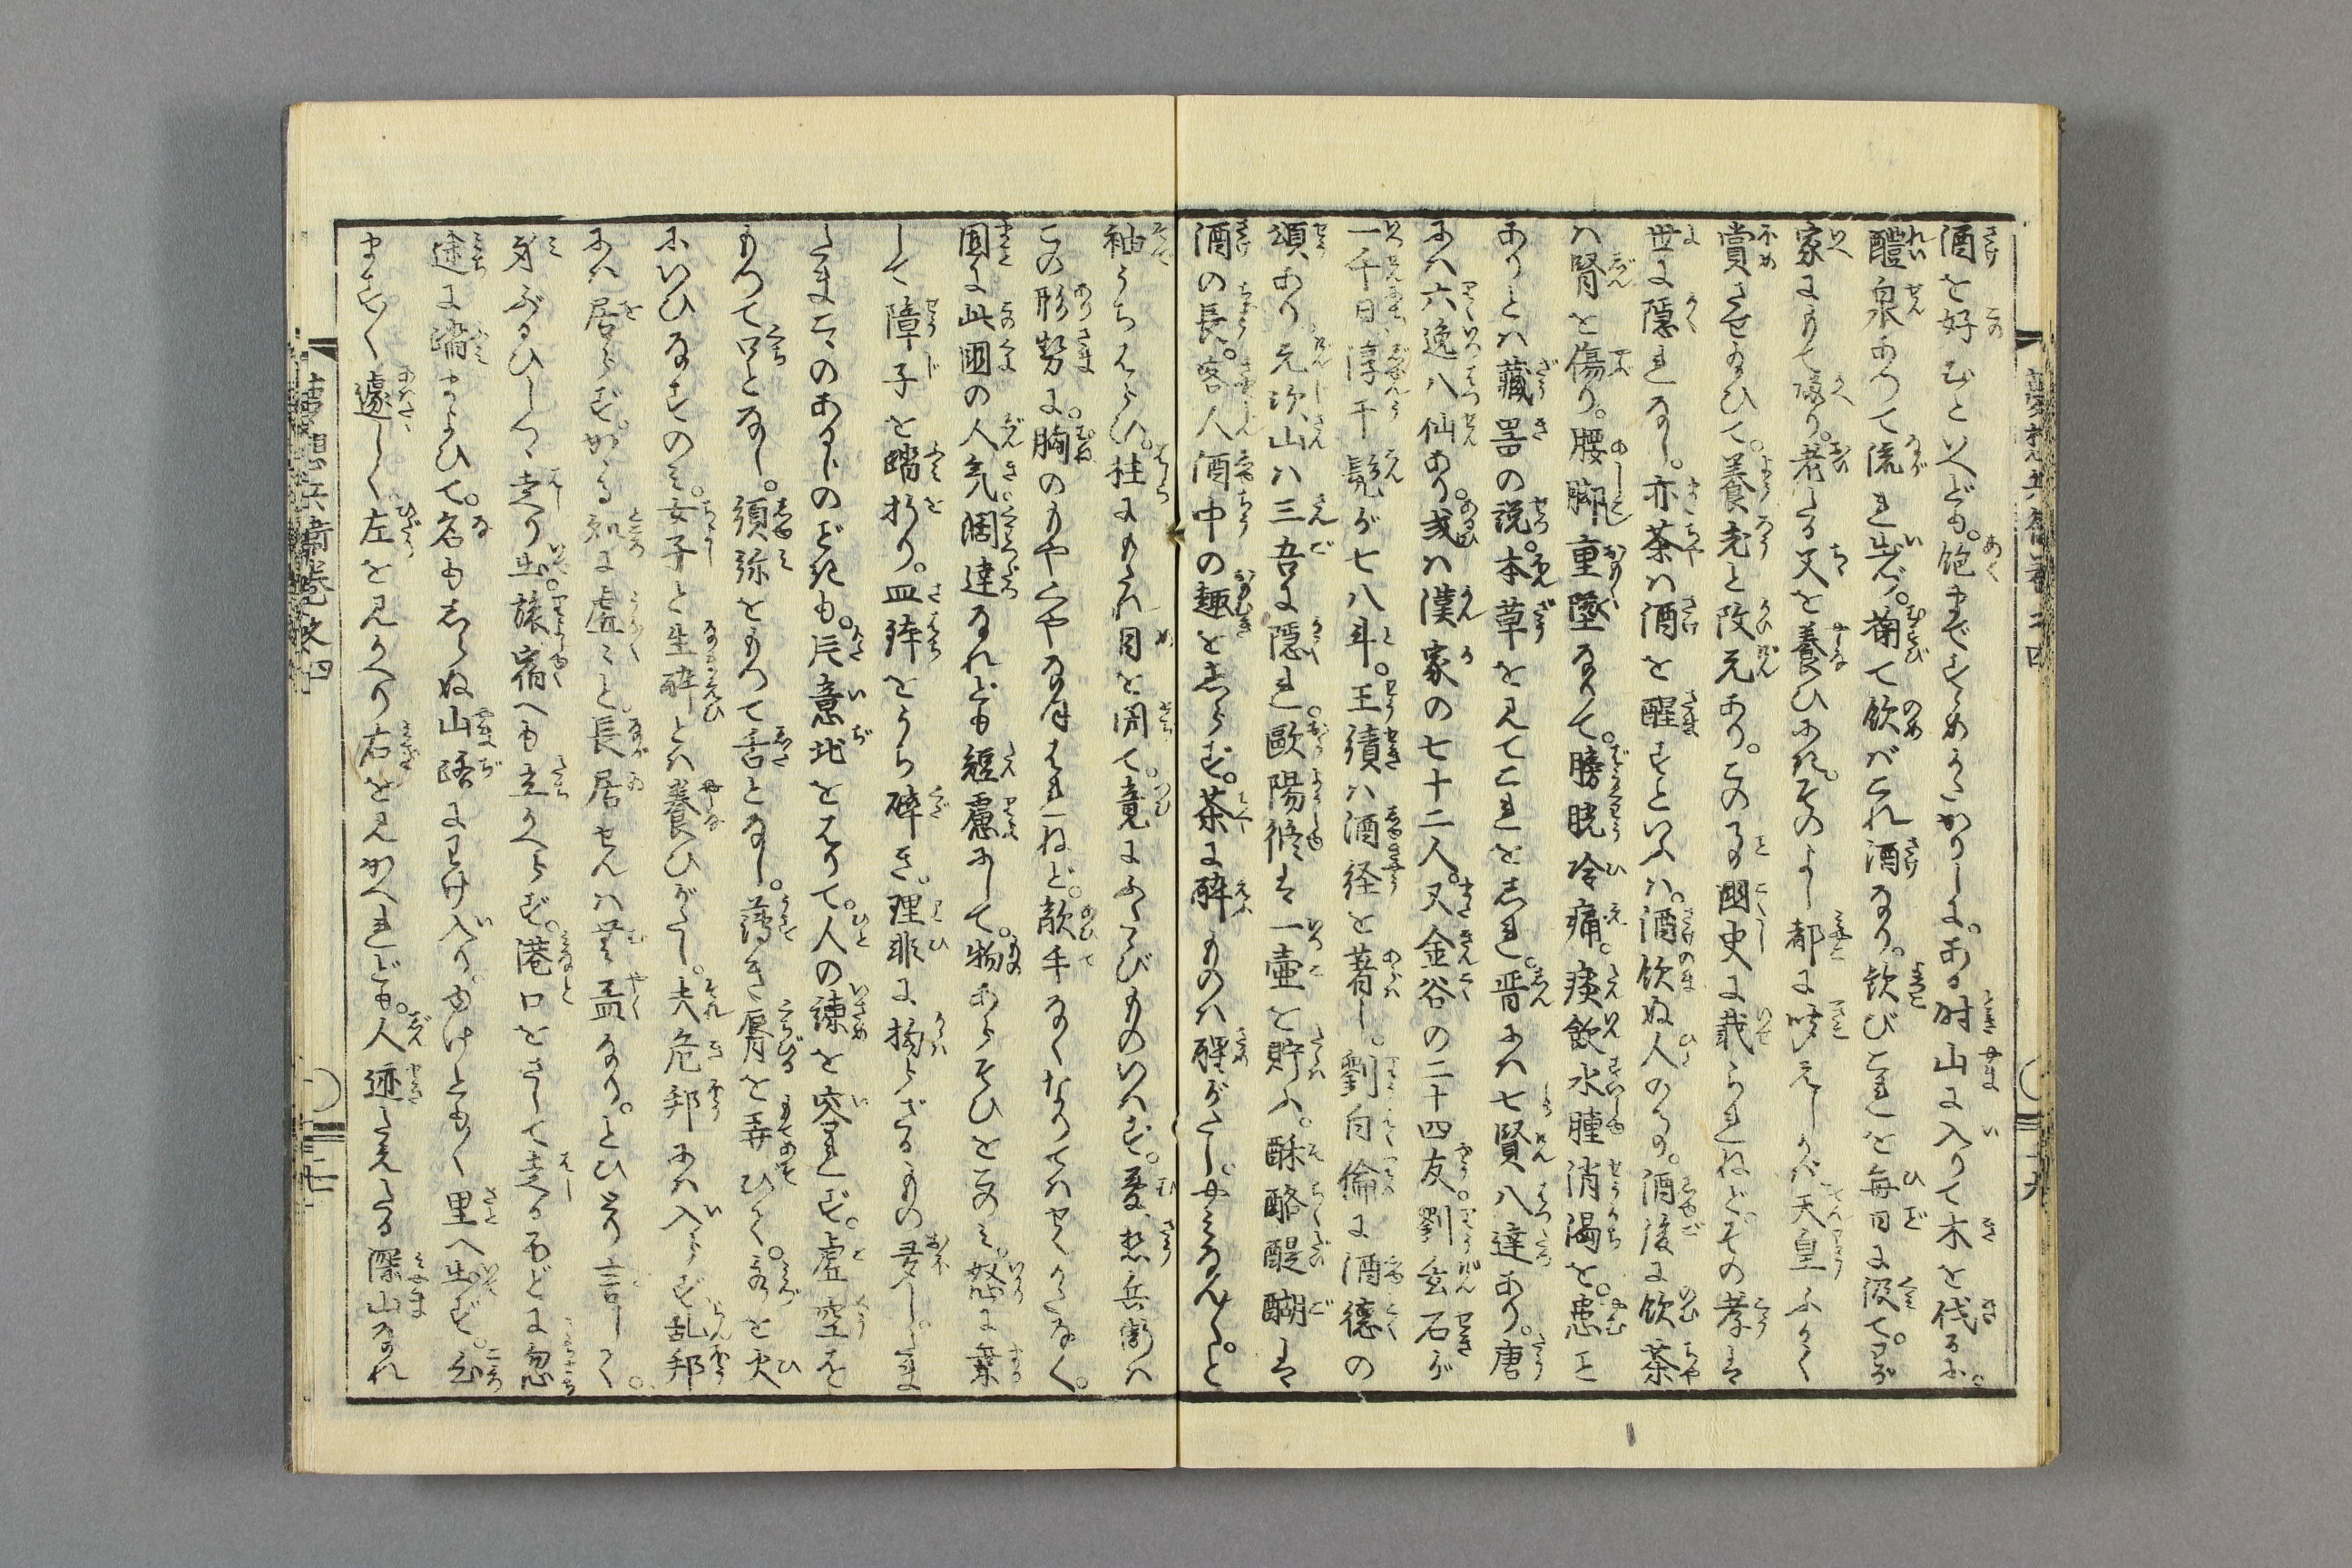 酒を好むといへども。飽まですゝめかたかりしに。ある時山に入りて木を伐るに。
醴泉あつて流れ出づ。掬て飲ばこれ酒なり。歓びこれを毎日に汲て。わが
家にもて帰り。老たる父を養ひぬれ。そのよし都に聞えしかバ天皇ふかく
賞させ給ひて。養老と改元あり。この事國史に載られねど。その孝は
世に隠れなし。亦茶ハ酒を醒すといふハ。酒飲ぬ人のこと。酒後に飲茶
ハ腎を傷り。腰脚重墜なくて。膀胱冷痛。痰飲水腫消渇を。患と
ありとハ藏器の説。本草を見てこれをしれ。晋にハ七賢八達あり。唐
にハ六逸八仙あり。或ハ漢家の七十二人。又金谷の二十四友。劉玄石が
一千日淳于髡が七八斗。王績ハ酒経を著し。劉白倫に酒徳の
頌あり元次山ハ三吾に隠れ。歐陽脩は一壺を貯ふ。酥酪醍醐は
酒の長。客人酒中の趣をしらず。茶に酔ものハ醒がたし。やみなん〳〵。と
袖うちはらひ。柱にもたれ目を閉て。竟にふたゝびものいはず。夢想兵衛ハ
この形勢に。胸のもやくやな月はれねど。敵手なくなりてハせんかたなく。
固に此國の人気。濶達なれども短慮にして。物あらそひをこのミ。怒に乗
して障子を踏折り。皿鉢をうち碎き。理非に拘らざるもの多し。たま
たまこゝのあるじのどれも。片意地をはりて。人の諫を容れず。虚空を
もつて口となし。須弥をもつて舌となし。薄き脣を弄ひて。水を火
にいひなすのミ。女子と生酔とハ養ひがたし。夫危邦にハ入らず乱邦
にハ居らず。かゝる処に虚々と。長居せんハ無益なり。とひとり言しつゝ。
身ぶるひしつゝ走り出。旅宿へも立かへらず。港口をさして走るほどに忽
途に踏まよひて。名もしらぬ山路にわけ入り。ゆけとも〳〵里へ出ず。心
ます〳〵遽しく左を見かへり右を見かへれども。人迹たえたる深山なれ
夢想兵衛巻之四